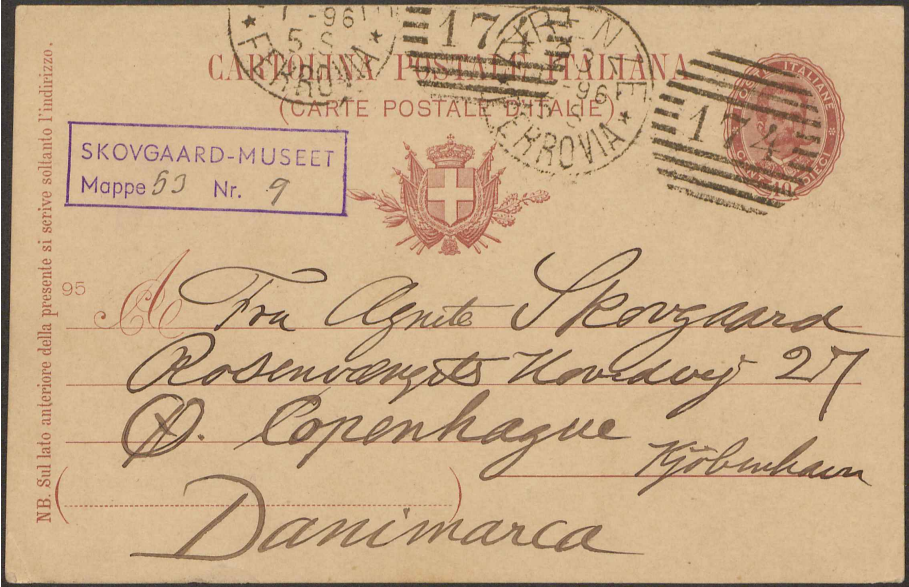 CARTOLINA POSTALE ITALIANA
(CARTE POSTALE D'ITALIE)
FERROVIA
174
FIRENZE
FERROVIA
174
POSTE ITALIANE
DIECI
SKOVGAARD-MUSEET
Mappe 53 Nr. 9
NB. Sul lato anteriore della presente si scrive soltanto l'indirizzo.
95
A Fru Agnete Skovgaard
Rosenvængets Hovedvej 27
Ø. Copenhague
Kjöbenhavn
Danimarca